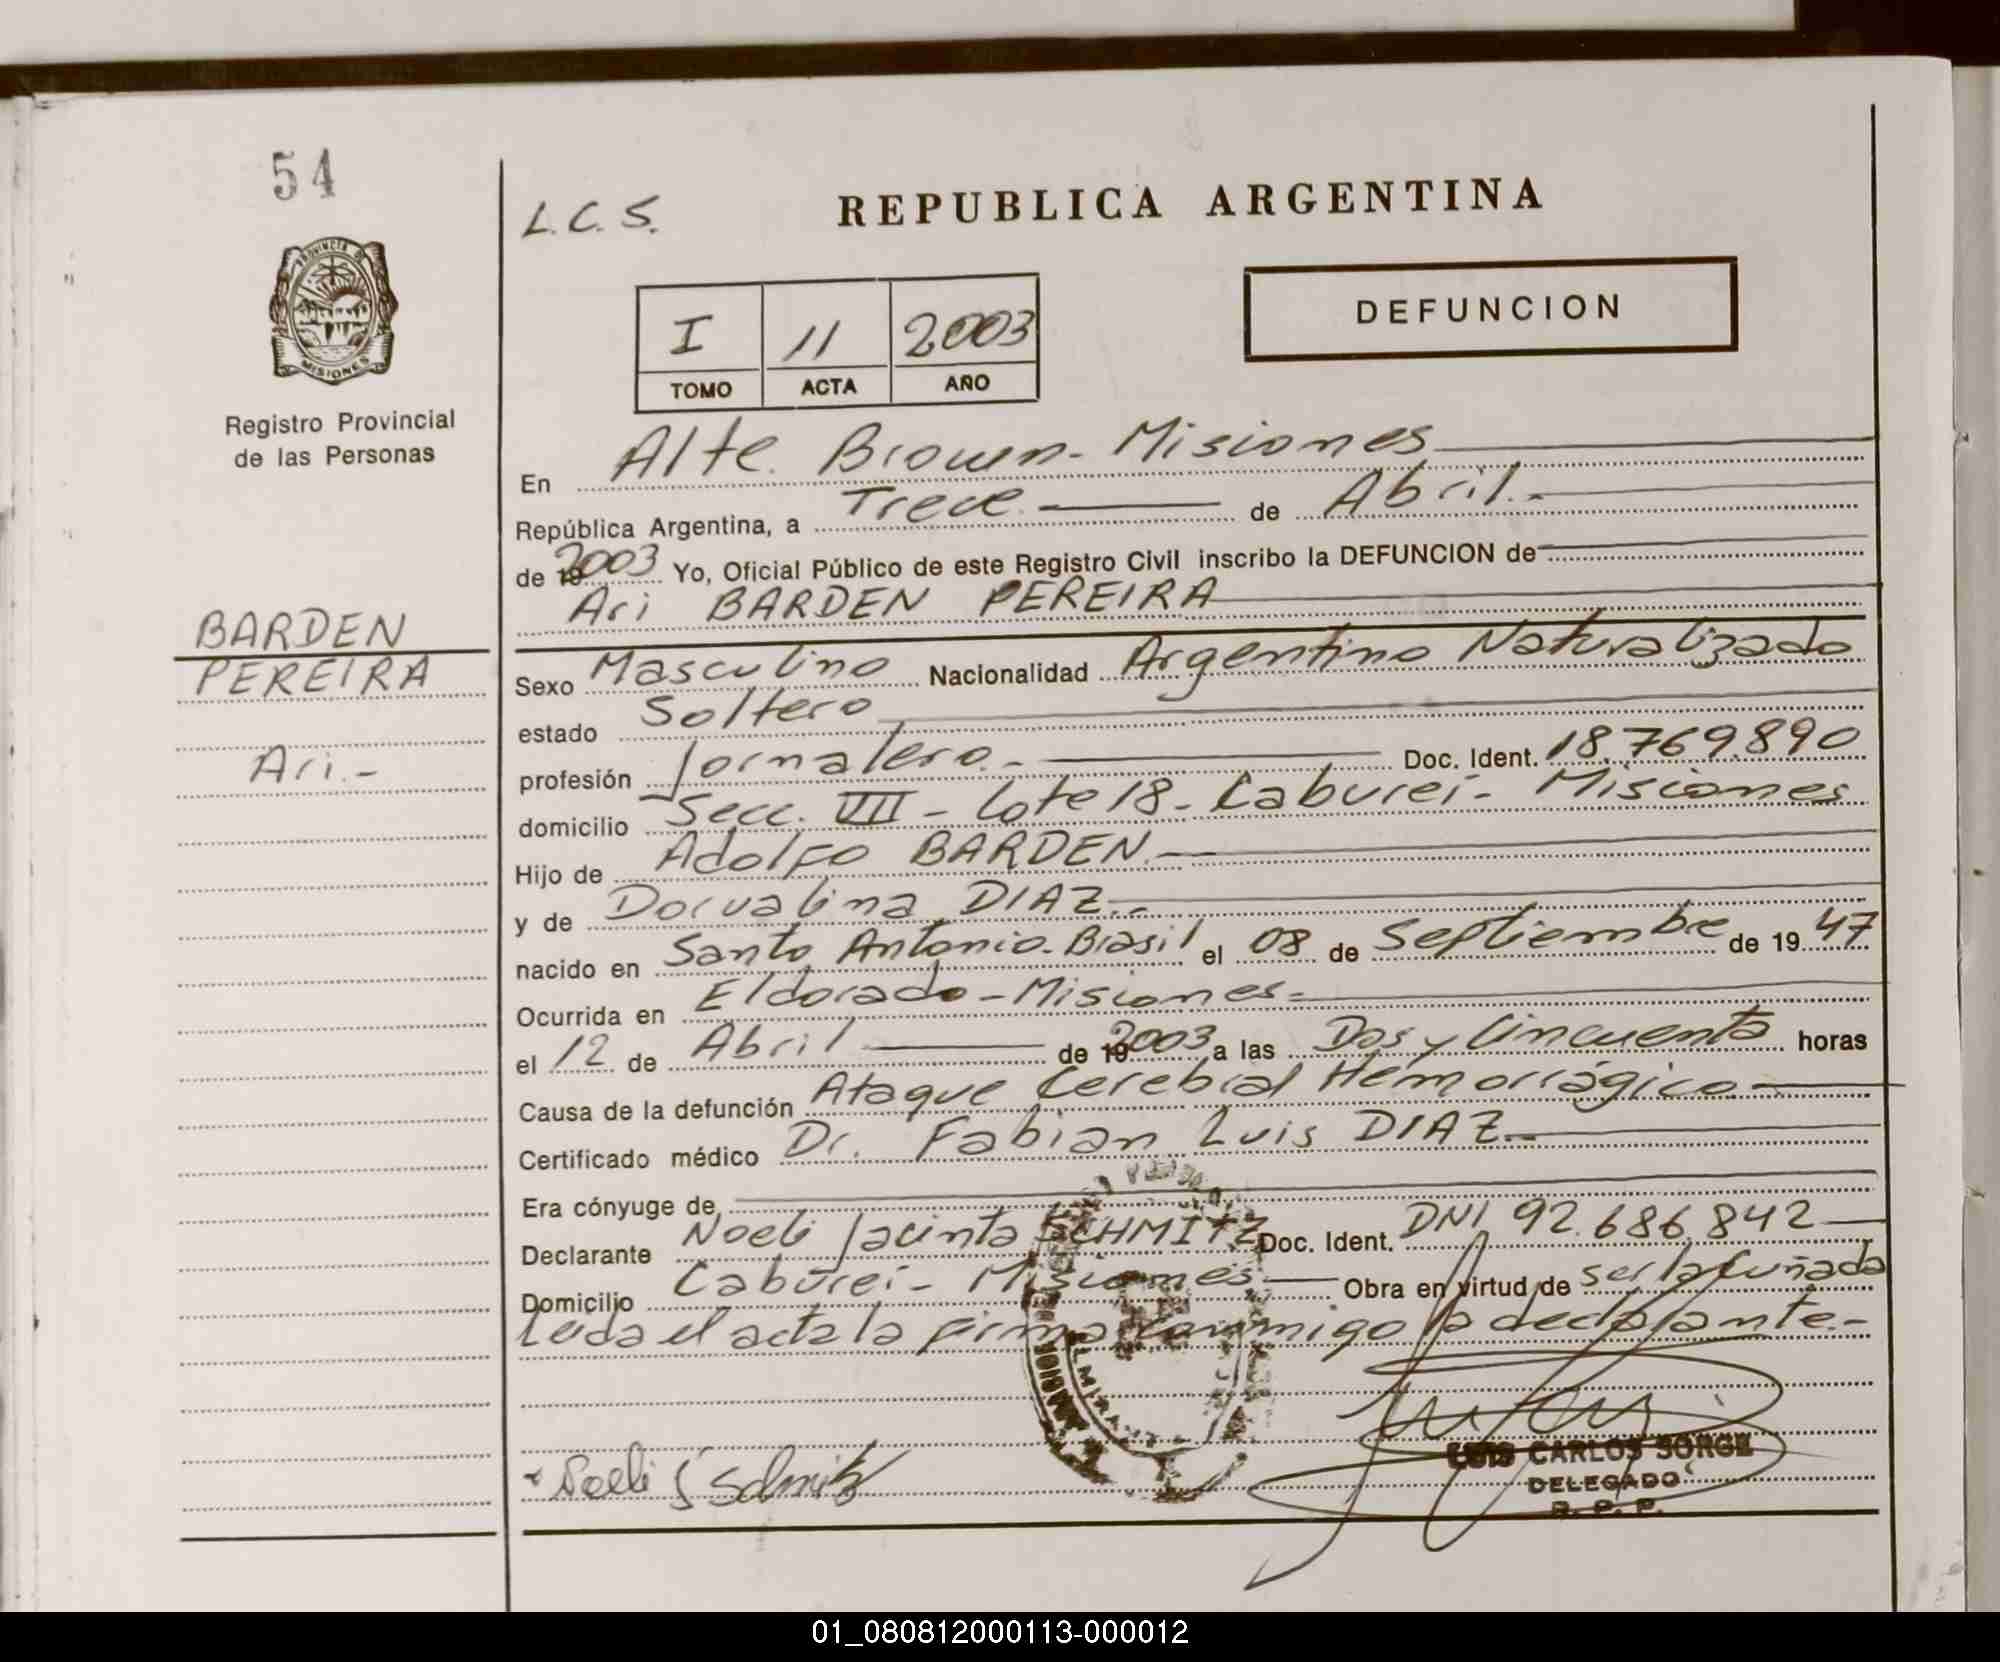 54
PROVINCIA DE
MISIONES
Registro Provincial
de las Personas
BARDEN
PEREIRA
Ari.-
L.C.S.
REPUBLICA ARGENTINA
I 11 2003
TOMO ACTA AÑO
DEFUNCION
En Alte. Brown - Misiones
República Argentina, a Trece de Abril.-
de 192003 Yo, Oficial Público de este Registro Civil inscribo la DEFUNCION de
Ari BARDEN PEREIRA
Sexo Masculino Nacionalidad Argentino Naturalizado
estado Soltero
profesión Jornalero.- Doc. Ident. 18.769.890
domicilio Secc. VII - Lote 18 - Caburei - Misiones
Hijo de Adolfo BARDEN.-
y de Dorvalina DIAZ.-
nacido en Santo Antonio - Brasil el 08 de Septiembre de 19 47
Ocurrida en Eldorado - Misiones -
el 12 de Abril de 192003 a las Dos y Cincuenta horas
Causa de la defunción Ataque Cerebral Hemorrágico -
Certificado médico Dr. Fabian Luis DIAZ.-
Era cónyuge de
Declarante Noeli Jacinta SCHMITZ Doc. Ident. DNI 92.686.842
Domicilio Caburei - Misiones Obra en virtud de ser la cuñada
Leida el acta la firma conmigo la declarante.-
Noeli J Schmitz
LUIS CARLOS SORGE
DELEGADO
R. P. P.
01_080812000113-000012